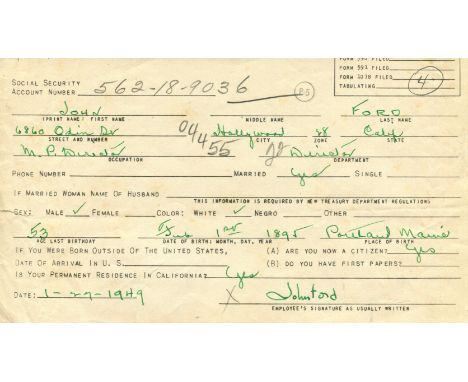 FORM 591 FILED
FORM 1078 FILED
TABULATING
4
SOCIAL SECURITY
ACCOUNT NUMBER 562-18-9036
JOHN FORD
(PRINT NAME) FIRST NAME MIDDLE NAME LAST NAME
6860 Odin Dr Hollywood 28 Calif
STREET AND NUMBER CITY ZONE STATE
M. P. Director 04455 Director
OCCUPATION DEPARTMENT
PHONE NUMBER MARRIED Yes SINGLE
IF MARRIED WOMAN NAME OF HUSBAND
THIS INFORMATION IS REQUIRED BY NEW TREASURY DEPARTMENT REGULATIONS
SEX: MALE ✓ FEMALE COLOR: WHITE ✓ NEGRO OTHER
53 Feb 1st 1895 Portland Maine
AGE LAST BIRTHDAY DATE OF BIRTH: MONTH, DAY, YEAR PLACE OF BIRTH
IF YOU WERE BORN OUTSIDE OF THE UNITED STATES, (A) ARE YOU NOW A CITIZEN? Yes
DATE OF ARRIVAL IN U. S. (B) DO YOU HAVE FIRST PAPERS?
IS YOUR PERMANENT RESIDENCE IN CALIFORNIA? Yes
DATE: 1-27-1949 X John Ford
EMPLOYEE'S SIGNATURE AS USUALLY WRITTEN